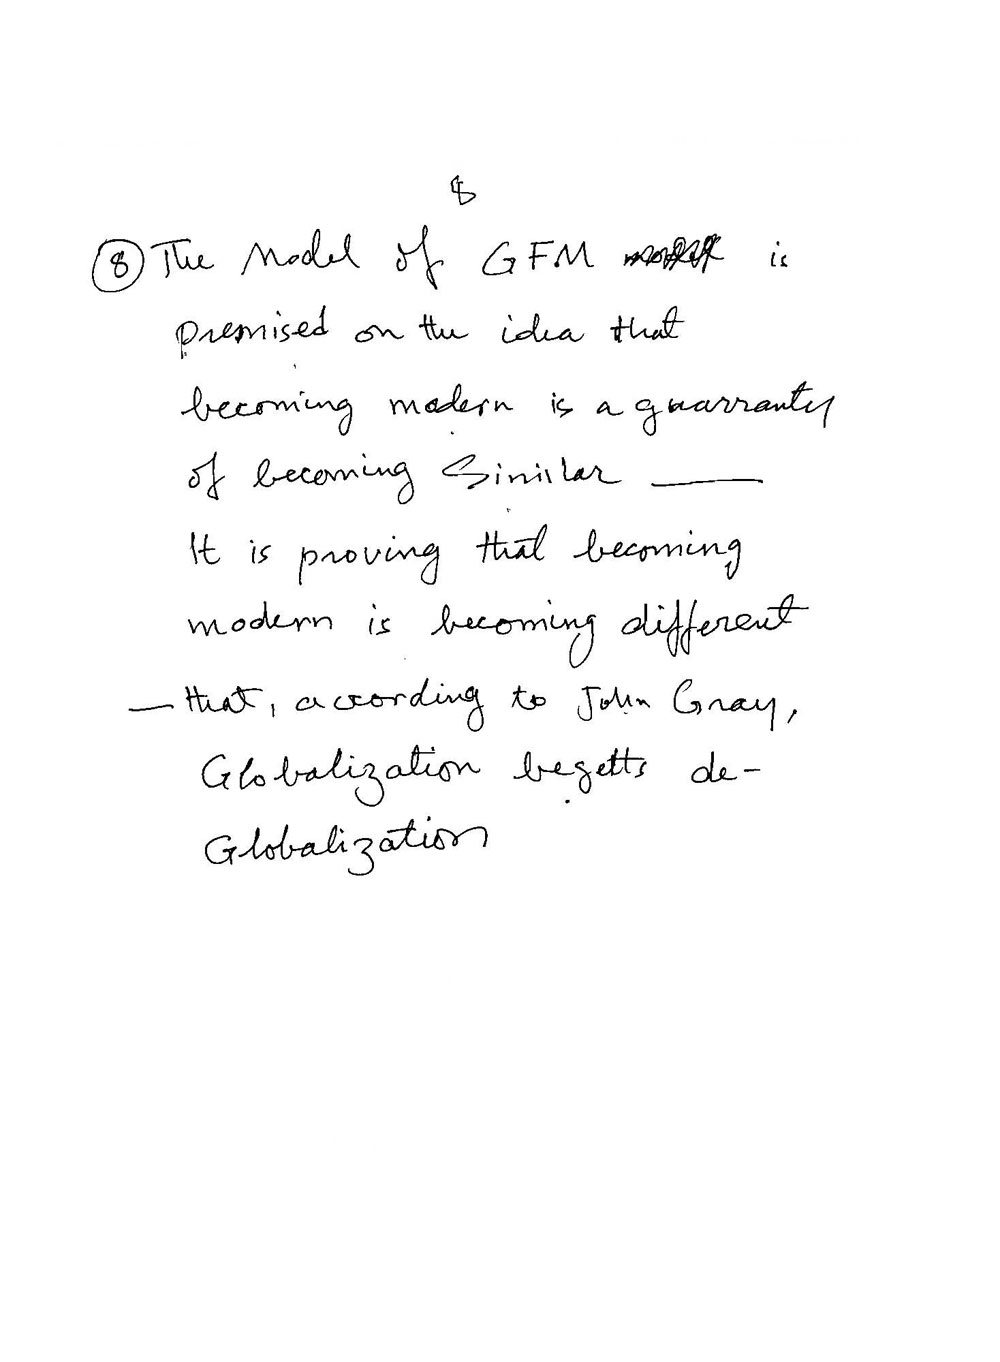 8
⑧ The Model of GFM is
premised on the idea that
becoming modern is a guarranty
of becoming Similar ——
It is proving that becoming
modern is becoming different
— that, according to John Gray,
Globalization begetts de-
Globalization